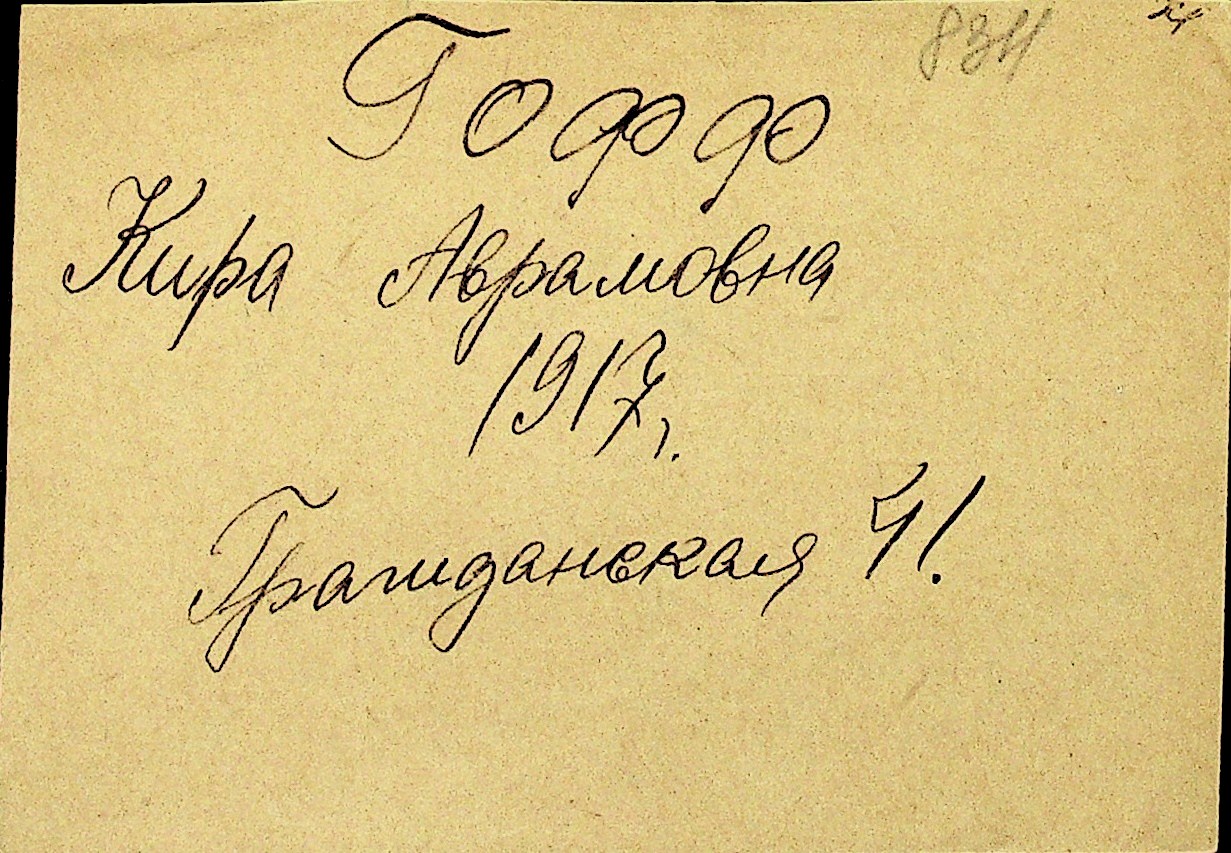 Гофф
Кира Аврамовна
1917г.
Гражданская 41.